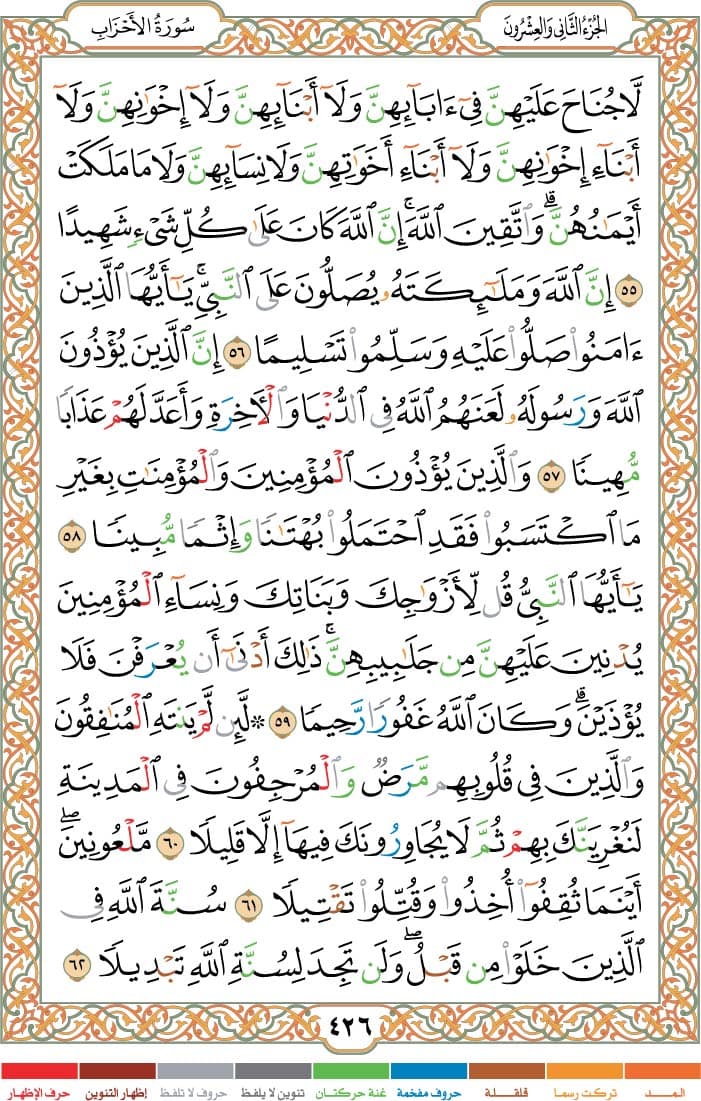 الجزء الثاني والعشرون
سورة الأحزاب
لَّا جُنَاحَ عَلَيْهِنَّ فِىٓ ءَابَآئِهِنَّ وَلَآ أَبْنَآئِهِنَّ وَلَآ إِخْوَٰنِهِنَّ وَلَآ
أَبْنَآءِ إِخْوَٰنِهِنَّ وَلَآ أَبْنَآءِ أَخَوَٰتِهِنَّ وَلَا نِسَآئِهِنَّ وَلَا مَا مَلَكَتْ
أَيْمَـٰنُهُنَّ ۗ وَٱتَّقِينَ ٱللَّهَ ۚ إِنَّ ٱللَّهَ كَانَ عَلَىٰ كُلِّ شَىْءٍ شَهِيدًا
٥٥ إِنَّ ٱللَّهَ وَمَلَـٰٓئِكَتَهُۥ يُصَلُّونَ عَلَى ٱلنَّبِىِّ ۚ يَـٰٓأَيُّهَا ٱلَّذِينَ
ءَامَنُوا۟ صَلُّوا۟ عَلَيْهِ وَسَلِّمُوا۟ تَسْلِيمًا ٥٦ إِنَّ ٱلَّذِينَ يُؤْذُونَ
ٱللَّهَ وَرَسُولَهُۥ لَعَنَهُمُ ٱللَّهُ فِى ٱلدُّنْيَا وَٱلْـَٔاخِرَةِ وَأَعَدَّ لَهُمْ عَذَابًا
مُّهِينًا ٥٧ وَٱلَّذِينَ يُؤْذُونَ ٱلْمُؤْمِنِينَ وَٱلْمُؤْمِنَـٰتِ بِغَيْرِ
مَا ٱكْتَسَبُوا۟ فَقَدِ ٱحْتَمَلُوا۟ بُهْتَـٰنًا وَإِثْمًا مُّبِينًا ٥٨
يَـٰٓأَيُّهَا ٱلنَّبِىُّ قُل لِّأَزْوَٰجِكَ وَبَنَاتِكَ وَنِسَآءِ ٱلْمُؤْمِنِينَ
يُدْنِينَ عَلَيْهِنَّ مِن جَلَـٰبِيبِهِنَّ ۚ ذَٰلِكَ أَدْنَىٰٓ أَن يُعْرَفْنَ فَلَا
يُؤْذَيْنَ ۗ وَكَانَ ٱللَّهُ غَفُورًا رَّحِيمًا ٥٩ ۞ لَّئِن لَّمْ يَنتَهِ ٱلْمُنَـٰفِقُونَ
وَٱلَّذِينَ فِى قُلُوبِهِم مَّرَضٌ وَٱلْمُرْجِفُونَ فِى ٱلْمَدِينَةِ
لَنُغْرِيَنَّكَ بِهِمْ ثُمَّ لَا يُجَاوِرُونَكَ فِيهَآ إِلَّا قَلِيلًا ٦٠ مَّلْعُونِينَ ۖ
أَيْنَمَا ثُقِفُوٓا۟ أُخِذُوا۟ وَقُتِّلُوا۟ تَقْتِيلًا ٦١ سُنَّةَ ٱللَّهِ فِى
ٱلَّذِينَ خَلَوْا۟ مِن قَبْلُ ۖ وَلَن تَجِدَ لِسُنَّةِ ٱللَّهِ تَبْدِيلًا ٦٢
٤٢٦
المــد تركت رسما قلقلة حروف مفخمة غنة حركتان تنوين لا يلفظ حروف لا تلفظ إظهار التنوين حرف الإظهار